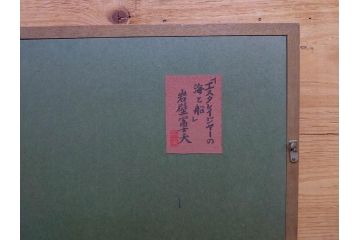 「エスタレイジャーの
海と船」
岩壁冨士夫